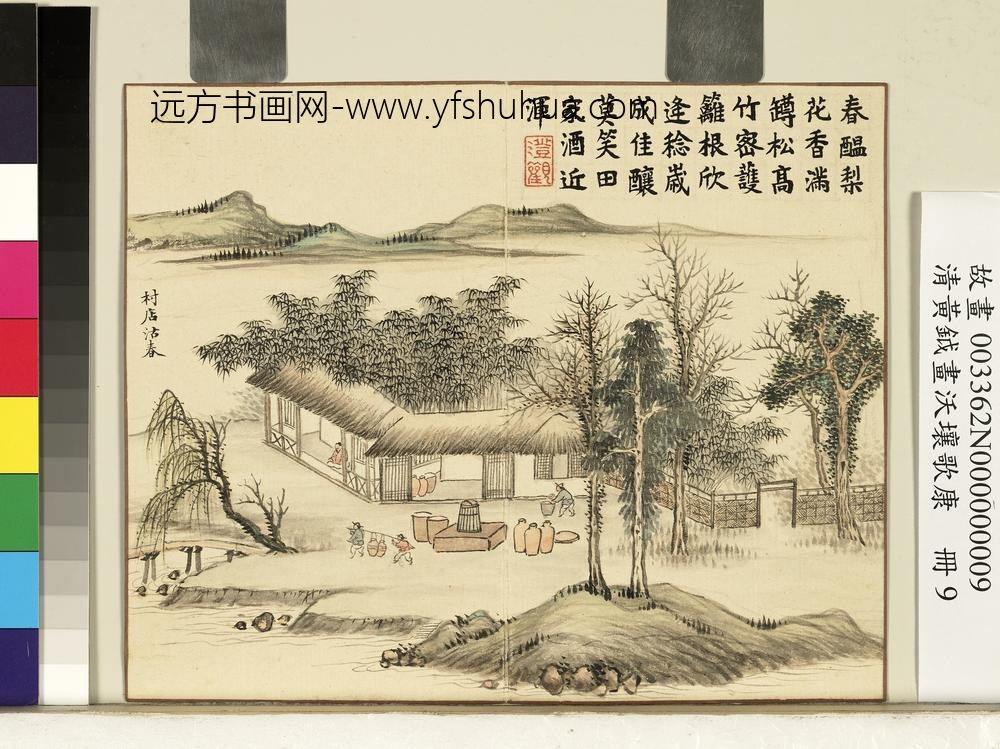 远方书画网-www.yfshuhua.com
春醖梨
花香滿
罇松高
竹密護
籬根欣
逢稔歲
成佳釀
莫笑田
家酒近
渾
澄觀
村店沽春
故畫 003362N000000009
清黃鉞畫沃壤歌康 冊 9